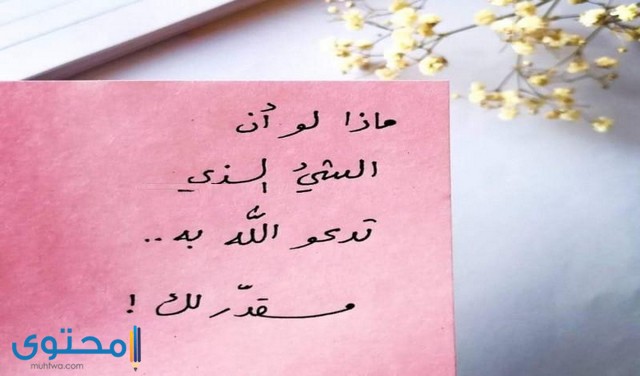 ماذا لو أن
الشيءُ الذي
تدعو اللّٰه به..
مقدّر لك !
محتوى
muhtwa.com